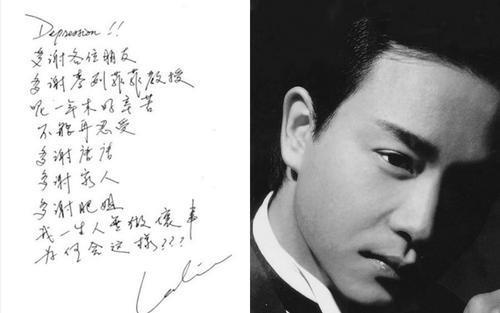 Depression!!
多谢各位朋友
多谢李列菲菲教授
呢一年来好辛苦
不能再忍受
多谢唐唐
多谢家人
多谢肥姐
我一生人无做坏事
为何会这样???
Leslie